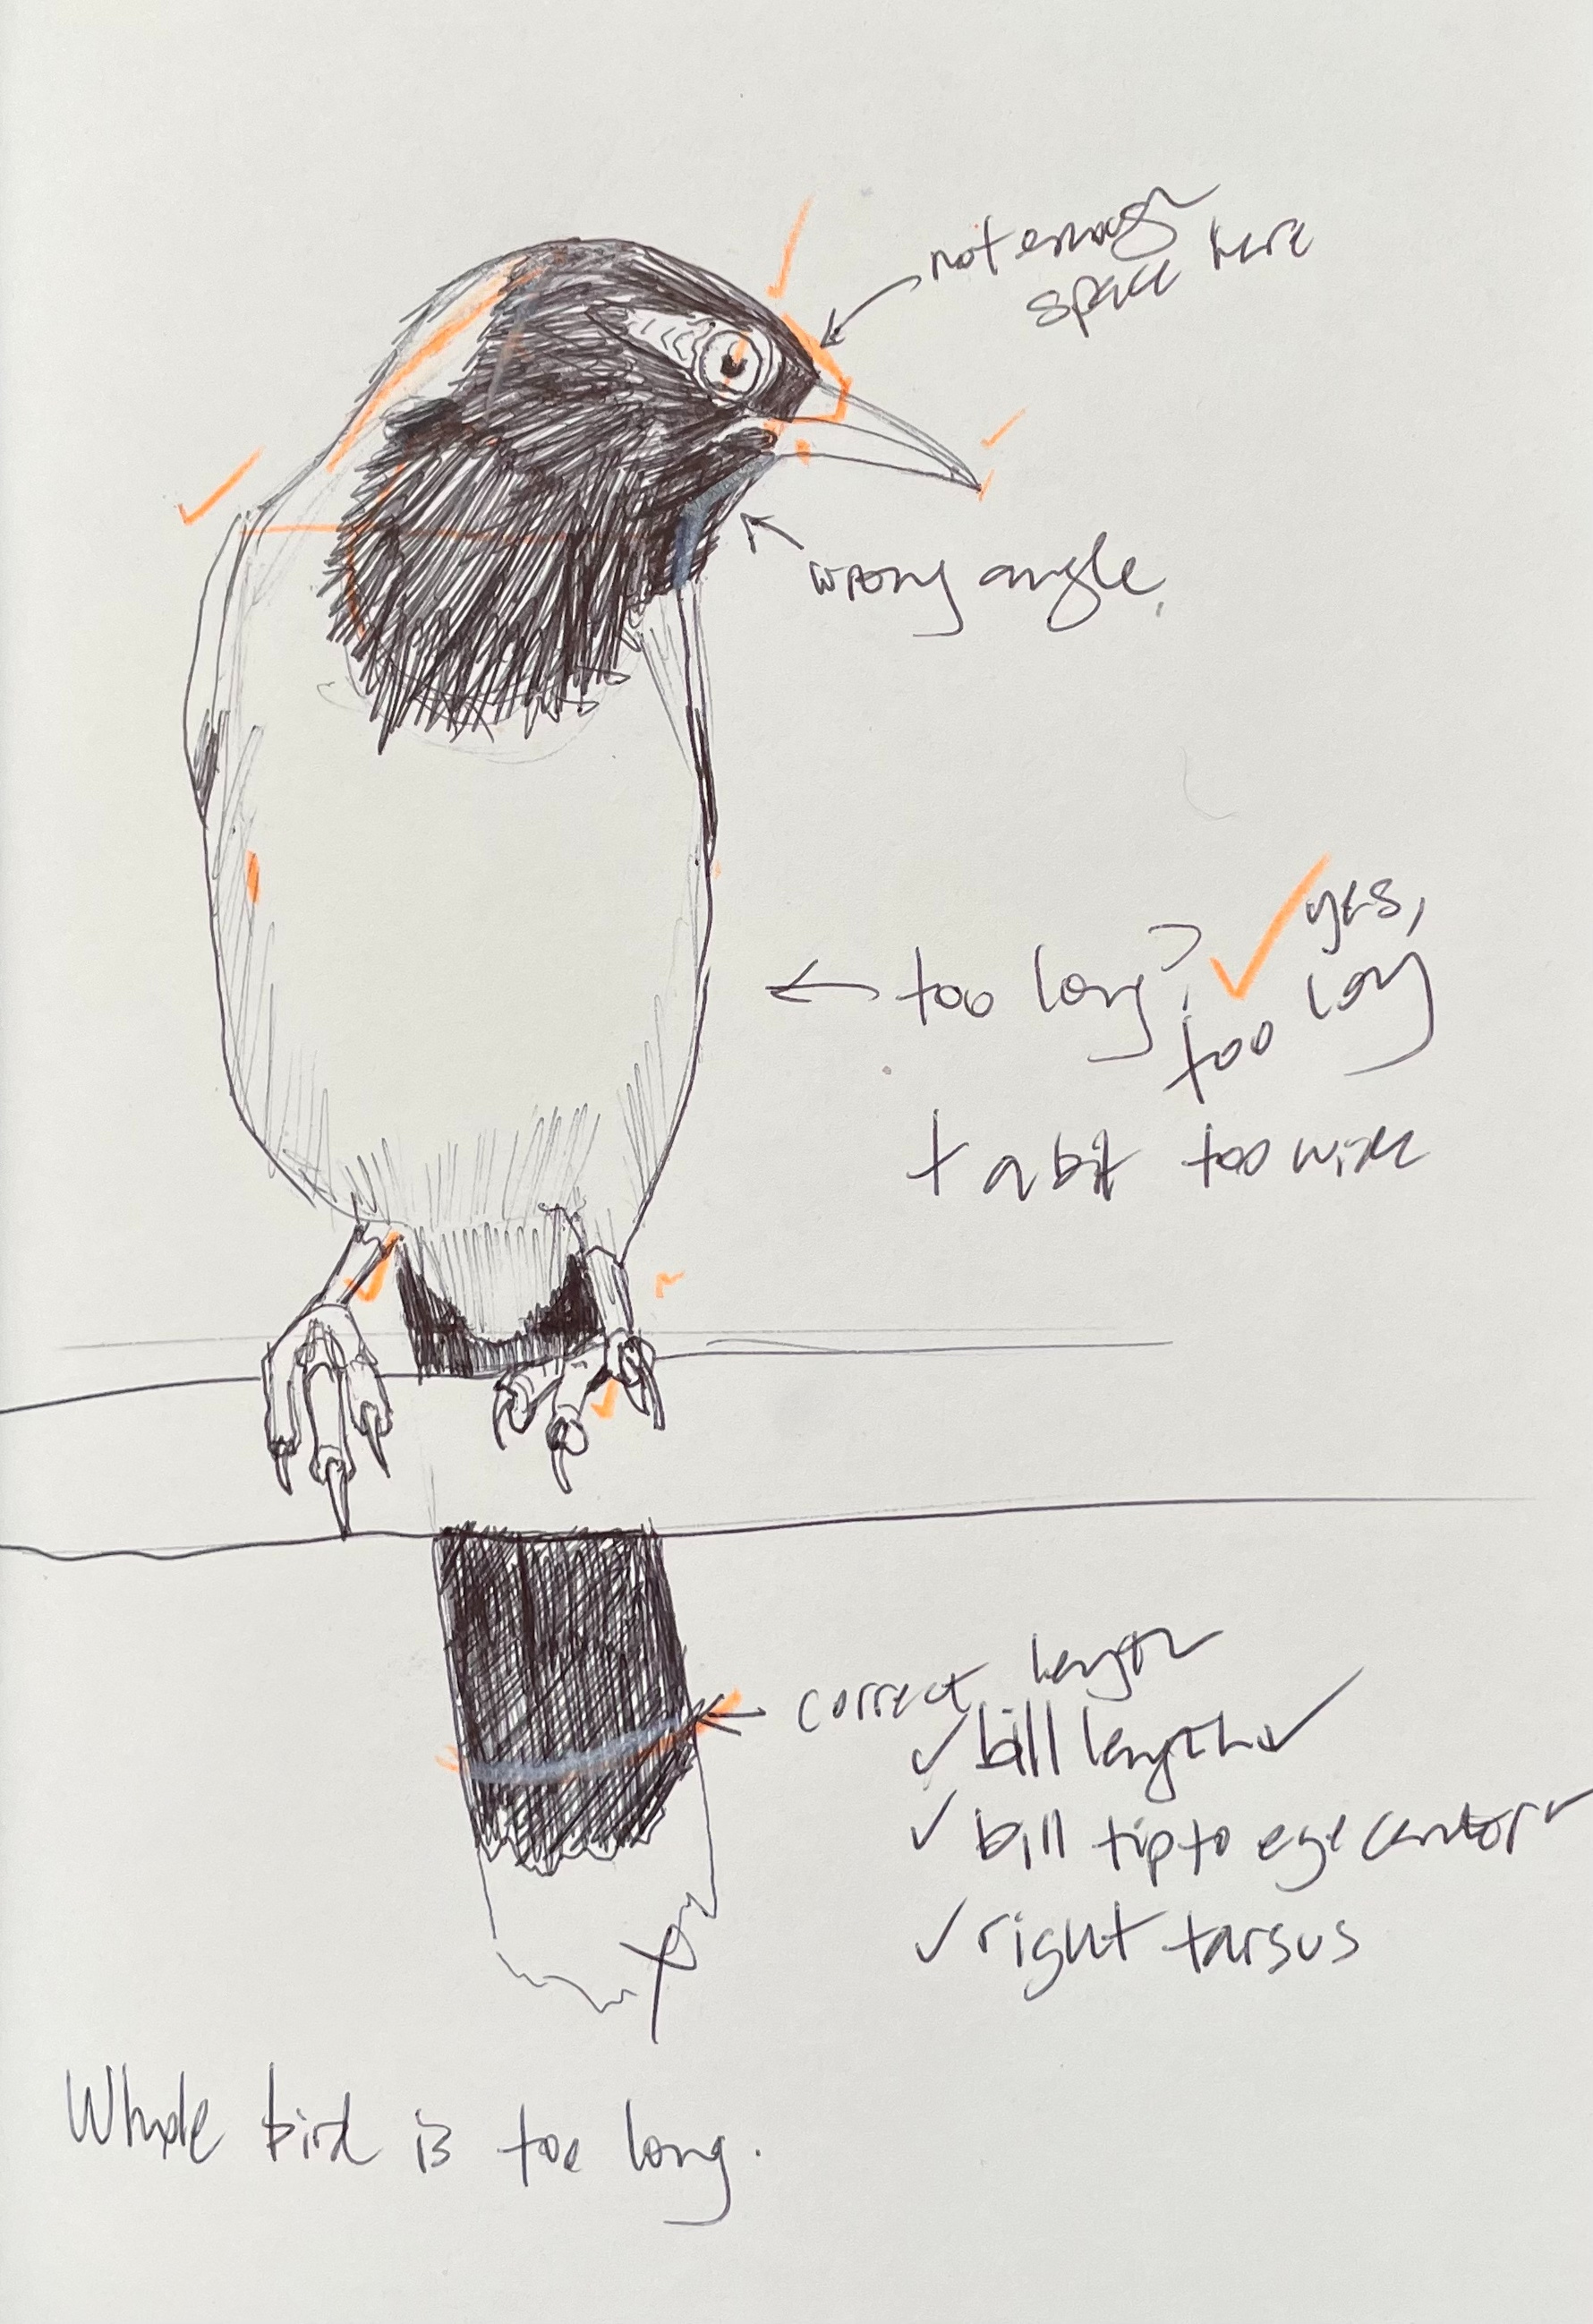 not enough
space here
wrong angle.
← too long? ✓ yes,
too long
+ a bit too wide
← correct length
✓ bill length ✓
✓ bill tip to eye center ✓
✓ right tarsus
X
Whole bird is too long.